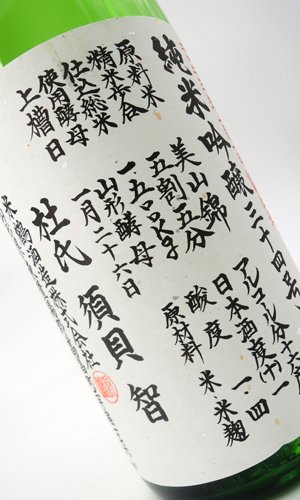 純米吟醸三十四号
アルコール分十六度
日本酒度(+)一
酸度 一.四
原材料 米 米麹
原料米 美山錦
精米歩合 五割五分
仕込総米 一五〇〇kg
使用酵母 山形酵母
上槽日 一月二十六日
杜氏 須貝 智
米鶴酒造株式会社